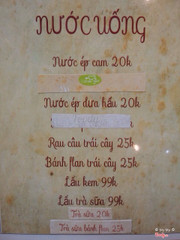 NƯỚC UỐNG
Nước ép cam 20k
Nước ép dưa hấu 20k
Rau câu trái cây 25k
Bánh flan trái cây 25k
Lẩu kem 99k
Lẩu trà sữa 99k
Trà sữa 20k
Trà sữa bánh flan 25k